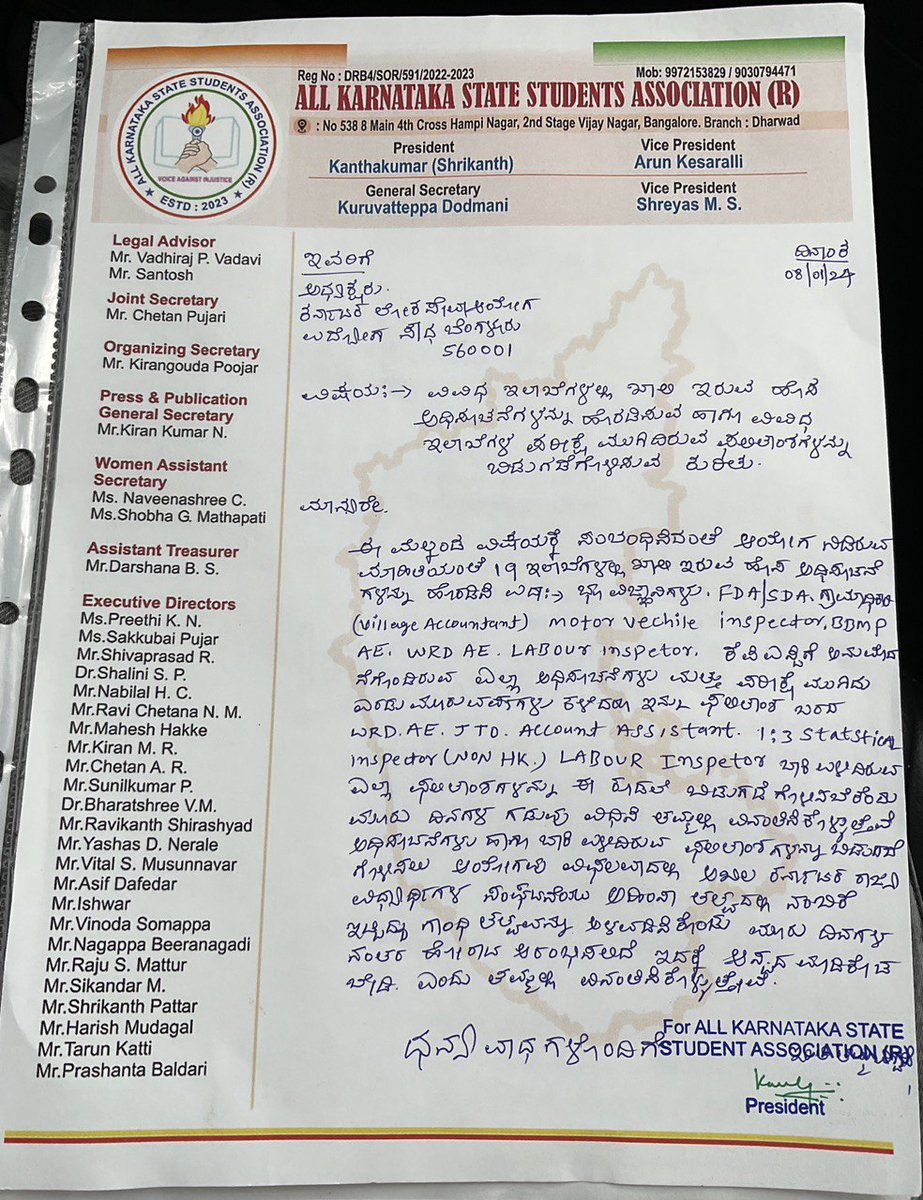 Reg No : DRB4/SOR/591/2022-2023
Mob: 9972153829 / 9030794471
ALL KARNATAKA STATE STUDENTS ASSOCIATION (R)
: No 538 8 Main 4th Cross Hampi Nagar, 2nd Stage Vijay Nagar, Bangalore. Branch : Dharwad
ALL KARNATAKA STATE STUDENTS ASSOCIATION (R)
VOICE AGAINST INJUSTICE
ESTD : 2023
President
Kanthakumar (Shrikanth)
Vice President
Arun Kesaralli
General Secretary
Kuruvatteppa Dodmani
Vice President
Shreyas M. S.
Legal Advisor
Mr. Vadhiraj P. Vadavi
Mr. Santosh
Joint Secretary
Mr. Chetan Pujari
Organizing Secretary
Mr. Kirangouda Poojar
Press & Publication
General Secretary
Mr.Kiran Kumar N.
Women Assistant
Secretary
Ms. Naveenashree C.
Ms.Shobha G. Mathapati
Assistant Treasurer
Mr.Darshana B. S.
Executive Directors
Ms.Preethi K. N.
Ms.Sakkubai Pujar
Mr.Shivaprasad R.
Dr.Shalini S. P.
Mr.Nabilal H. C.
Mr.Ravi Chetana N. M.
Mr.Mahesh Hakke
Mr.Kiran M. R.
Mr.Chetan A. R.
Mr.Sunilkumar P.
Dr.Bharatshree V.M.
Mr.Ravikanth Shirashyad
Mr.Yashas D. Nerale
Mr.Vital S. Musunnavar
Mr.Asif Dafedar
Mr.Ishwar
Mr.Vinoda Somappa
Mr.Nagappa Beeranagadi
Mr.Raju S. Mattur
Mr.Sikandar M.
Mr.Shrikanth Pattar
Mr.Harish Mudagal
Mr.Tarun Katti
Mr.Prashanta Baldari
ಇವರಿಗೆ
ದಿನಾಂಕ
08/01/24
ಅಧ್ಯಕ್ಷರು.
ಕರ್ನಾಟಕ ಲೋಕ ಸೇವಾ ಆಯೋಗ
ಉದ್ಯೋಗ ಸೌಧ ಬೆಂಗಳೂರು
560001
ವಿಷಯ:-> ವಿವಿಧ ಇಲಾಖೆಗಳಲ್ಲಿ ಖಾಲಿ ಇರುವ ಹೊಸ
ಅಧಿಸೂಚನೆಗಳನ್ನು ಹೊರಡಿಸುವ ಹಾಗೂ ವಿವಿಧ
ಇಲಾಖೆಗಳ ಪರೀಕ್ಷೆ ಮುಗಿದಿರುವ ಫಲಿತಾಂಶಗಳನ್ನು
ಬಿಡುಗಡೆಗೊಳಿಸುವ ಕುರಿತು.
ಮಾನ್ಯರೇ.
ಈ ಮೇಲ್ಕಂಡ ವಿಷಯಕ್ಕೆ ಸಂಬಂಧಿಸಿದಂತೆ ಆಯೋಗ ನೀಡಿರುವ
ಮಾಹಿತಿಯಂತೆ 19 ಇಲಾಖೆಗಳಲ್ಲಿ ಖಾಲಿ ಇರುವ ಹೊಸ ಅಧಿಸೂಚನೆ
ಗಳನ್ನು ಹೊರಡಿಸಿ ಉದಾ:-> ಭೂ ವಿಜ್ಞಾನಿಗಳು. FDA/SDA.
(Village Accountant) motor vechile inspector, BBMP
AE. WRD AE. LABour Inspetor. ಕೆಪಿಎಸ್ಸಿಗೆ ಅನುಮೋದ
ನೆಗೊಂಡಿರುವ ಎಲ್ಲಾ ಅಧಿಸೂಚನೆಗಳು ಮತ್ತು ಪರೀಕ್ಷೆ ಮುಗಿದು
ಎರಡು ಮೂರು ವರ್ಷಗಳು ಕಳೆದರೂ ಇನ್ನೂ ಫಲಿತಾಂಶ ಬರದ
WRD. AE. JTO. Account ASSistant. 1:3 Statstical
Inspector (NON HK.) LABOUR Inspetor ಬಾಕಿ ಉಳಿದಿರುವ
ಎಲ್ಲಾ ಫಲಿತಾಂಶಗಳನ್ನು ಈ ಕೂಡಲೆ ಬಿಡುಗಡೆ ಗೊಳಿಸಬೇಕೆಂದು
ಮೂರು ದಿನಗಳ ಗಡುವು ವಿಧಿಸಿ ತಮ್ಮಲ್ಲಿ ವಿನಂತಿಸಿಕೊಳ್ಳುತ್ತೇವೆ
ಅಧಿಸೂಚನೆಗಳು ಹಾಗೂ ಬಾಕಿ ಉಳಿದಿರುವ ಫಲಿತಾಂಶಗಳನ್ನು ಬಿಡುಗಡೆ
ಗೊಳಿಸಲು ಆಯೋಗವು ವಿಫಲವಾದಲ್ಲಿ ಅಖಿಲ ಕರ್ನಾಟಕ ರಾಜ್ಯ
ವಿದ್ಯಾರ್ಥಿಗಳ ಸಂಘಟನೆಯು ಅಹಿಂಸಾ ತತ್ವದಲ್ಲಿ ನಂಬಿಕೆ
ಇಟ್ಟಿದ್ದು ಗಾಂಧಿ ತತ್ವವನ್ನು ಅಳವಡಿಸಿಕೊಂಡು ಮೂರು ದಿನಗಳ
ನಂತರ ಹೋರಾಟ ಆರಂಭಿಸಲಿದೆ ಇದಕ್ಕೆ ಆಸ್ಪದ ಮಾಡಿಕೊಡ
ಬೇಡಿ. ಎಂದು ತಮ್ಮಲ್ಲಿ ವಿನಂತಿಸಿಕೊಳ್ಳುತ್ತೇವೆ.
ಧನ್ಯವಾದಗಳೊಂದಿಗೆ
For ALL KARNATAKA STATE
STUDENT ASSOCIATION (R)
President